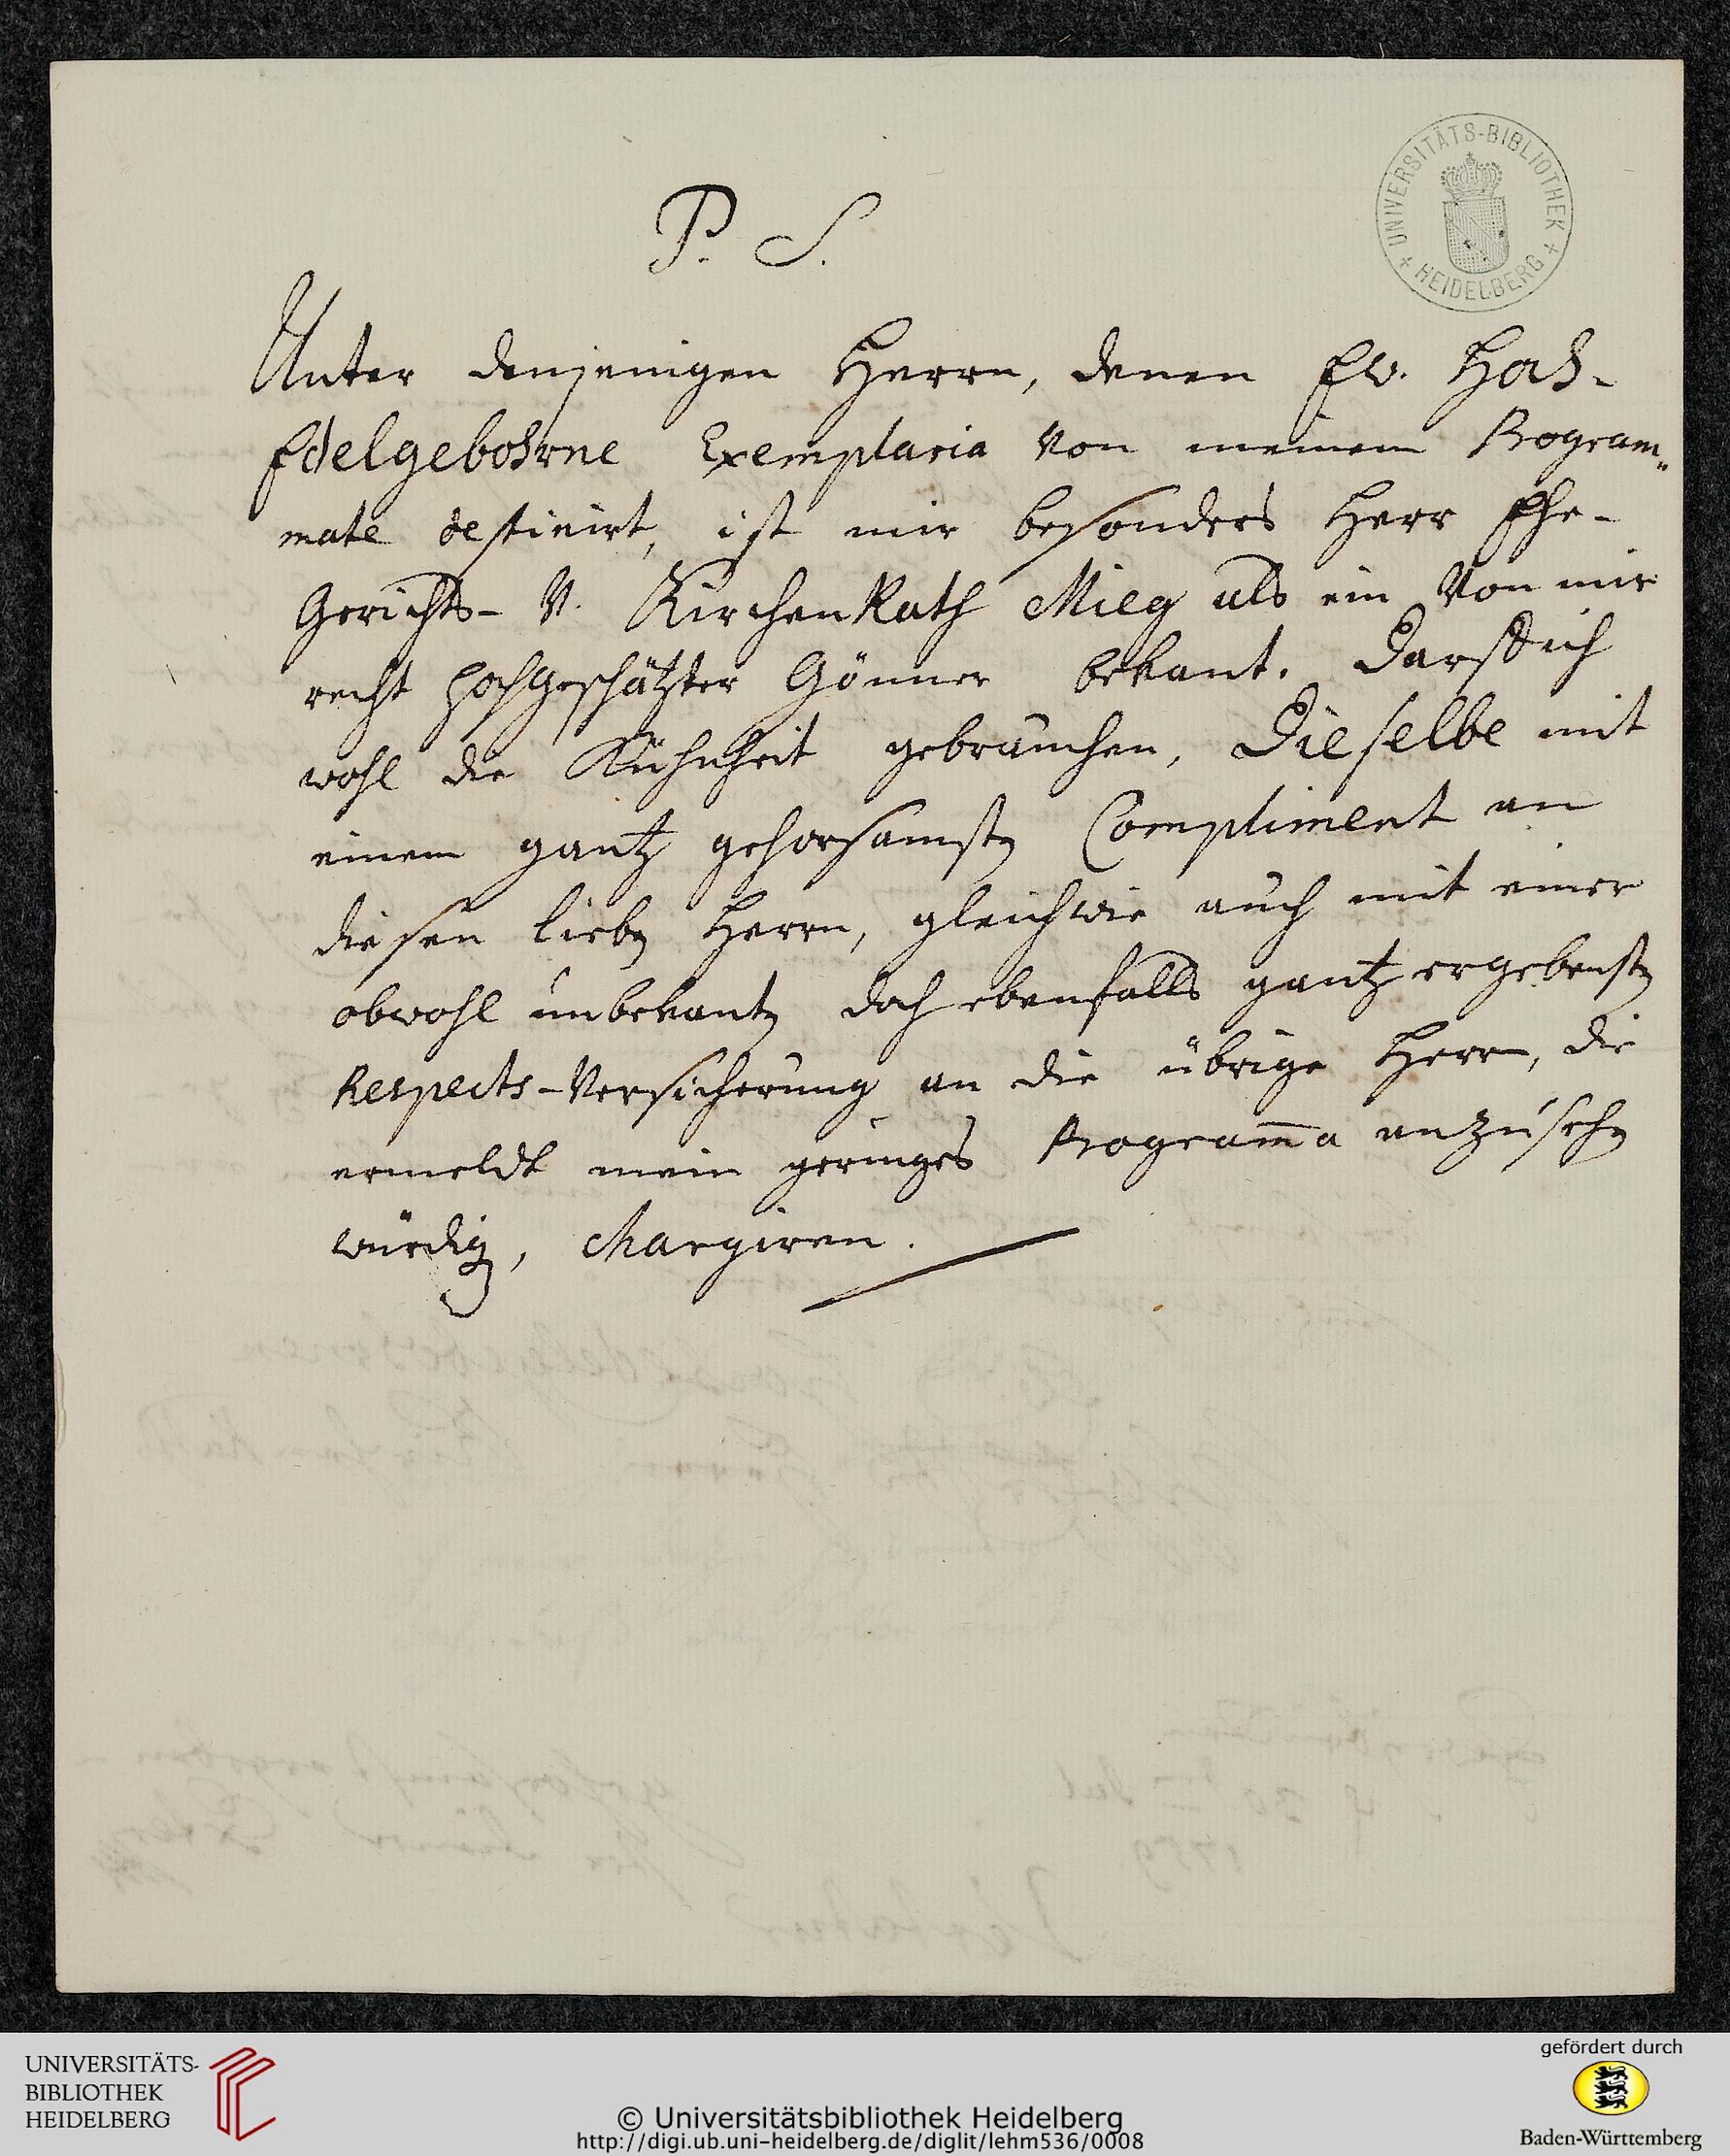 P. S.
UNIVERSITÄTS-BIBLIOTHEK
+ HEIDELBERG +
Unter denjenigen Herrn, denen Ew. Hoch-
Edelgebohrne Exemplaria von meinem Program„
mate destinirt, ist mir besonders Herr Ehe-
Gerichts- u. KirchenRath Mieg als ein von mir
recht hochgeschätzter Gönner bekant. Darff ich
wohl die Kühnheit gebrauchen, Dieselbe mit
einem gantz gehorsamsten Compliment an
diesen lieben Herrn, gleichwie auch mit einer
obwohl unbekanten doch ebenfalls gantz ergebensten
Respects-Versicherung an die übrige Herrn, die
ermeldt mein geringes Programma anzusehen
würdigen, chargiren.
1759
UNIVERSITÄTS-
BIBLIOTHEK
HEIDELBERG
© Universitätsbibliothek Heidelberg
http://digi.ub.uni-heidelberg.de/diglit/lehm536/0008
gefördert durch
Baden-Württemberg